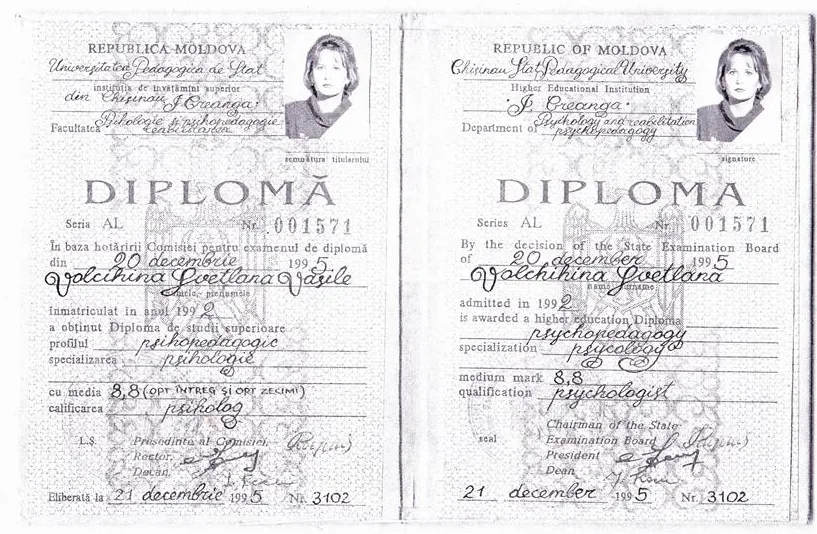 REPUBLICA MOLDOVA
Universitatea Pedagogica de Stat
instituția de învățămînt superior
din Chișinau "I. Creanga"
Facultatea Psihologie și psihopedagogie
reabilitarea
semnătura titularului
DIPLOMĂ
Seria AL Nr. 001571
În baza hotărîrii Comisiei pentru examenul de diplomă
din 20 decembrie 1995
Volcihina Svetlana Vasile
numele, prenumele
înmatriculat în anul 1992
a obținut Diploma de studii superioare
profilul psihopedagogic
specializarea psihologie
cu media 8,8 (OPT ÎNTREG ȘI OPT ZECIMI)
calificarea psiholog
L.Ș. Președinte al Comisiei,
Rector,
Decan,
Eliberată la 21 decembrie 1995 Nr. 3102
REPUBLIC OF MOLDOVA
Chisinau Stat Pedagogical University
Higher Educational Institution
"I. Creanga"
Department of Psychology and reabilitation
psychopedagogy
signature
DIPLOMA
Series AL Nr. 001571
By the decision of the State Examination Board
of 20 december 1995
Volchihina Svetlana
name, surname
admitted in 1992
is awarded a higher education Diploma
psychopedagogy
specialization psycology
medium mark 8,8
qualification psychologist
Chairman of the State
seal Examination Board
President
Dean
21 december 1995 Nr. 3102